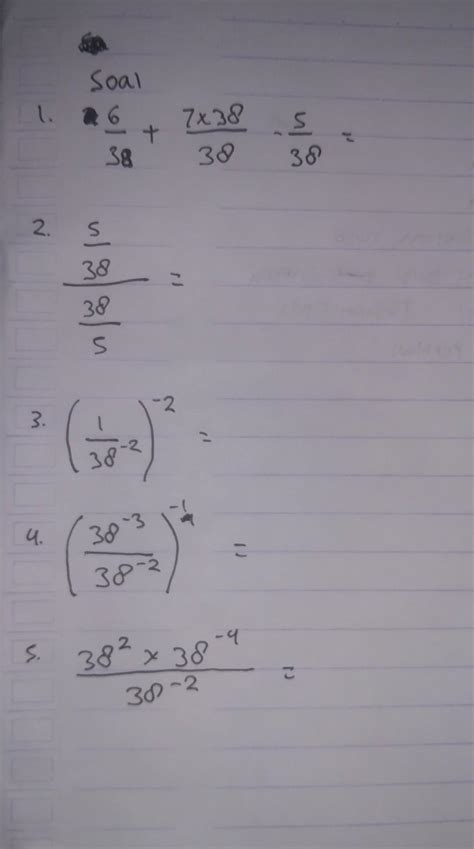 Soal
1. 6/38 + 7x38/38 - 5/38 =
2. 5/38 / 38/5 =
3. (1/38⁻²)⁻² =
4. (38⁻³/38⁻²)⁻¹ =
5. 38² x 38⁻⁴ / 38⁻² =